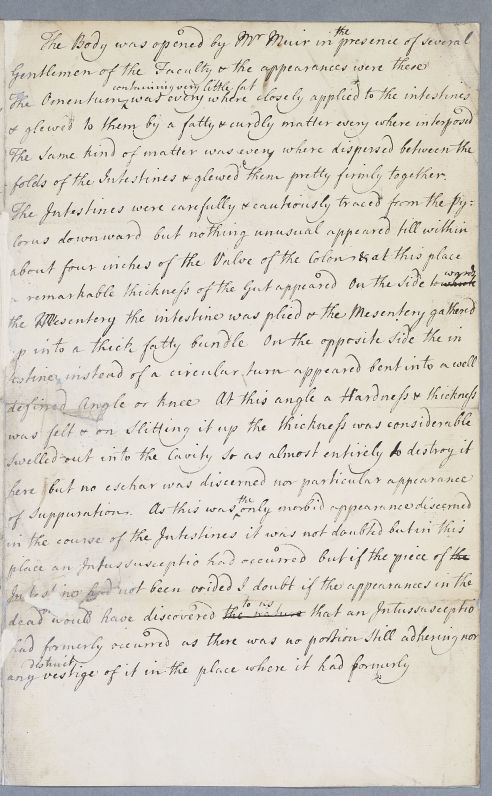 The Body was opened by Mr Muir in the presence of several
Gentlemen of the Faculty & the appearances were these
containing very little fat
The Omentum was every where closely applied to the intestines
& glewed to them by a fatty & curdly matter every where interposed
The same kind of matter was every where dispersed between the
folds of the Intestines & glewed them pretty firmly together.
The Intestines were carefully & cautiously traced from the Py=
lorus downward but nothing unusual appeared till within
about four inches of the Valve of the Colon & at this place
a remarkable thickness of the Gut appeared On the side towards
the Mesentery the intestine was plied & the Mesentery gathered
up into a thick fatty bundle On the opposite side the in
testine, instead of a circular turn appeared bent into a well
defined Angle or knee At this angle a Hardness & thickness
was felt & on slitting it up the thickness was considerable
swelled out into the Cavity so as almost entirely to destroy it
here but no eschar was discerned nor particular appearance
of Suppuration. As this was the only morbid appearance discerned
in the course of the Intestines it was not doubted but in this
place an Intussusceptio had occurred but if the piece of the
Intestine had not been voided I doubt if the appearances in the
dead would have discovered to us that an Intussusceptio
had formerly occurred as there was no portion still adhering nor
any distinct vestige of it in the place where it had formerly